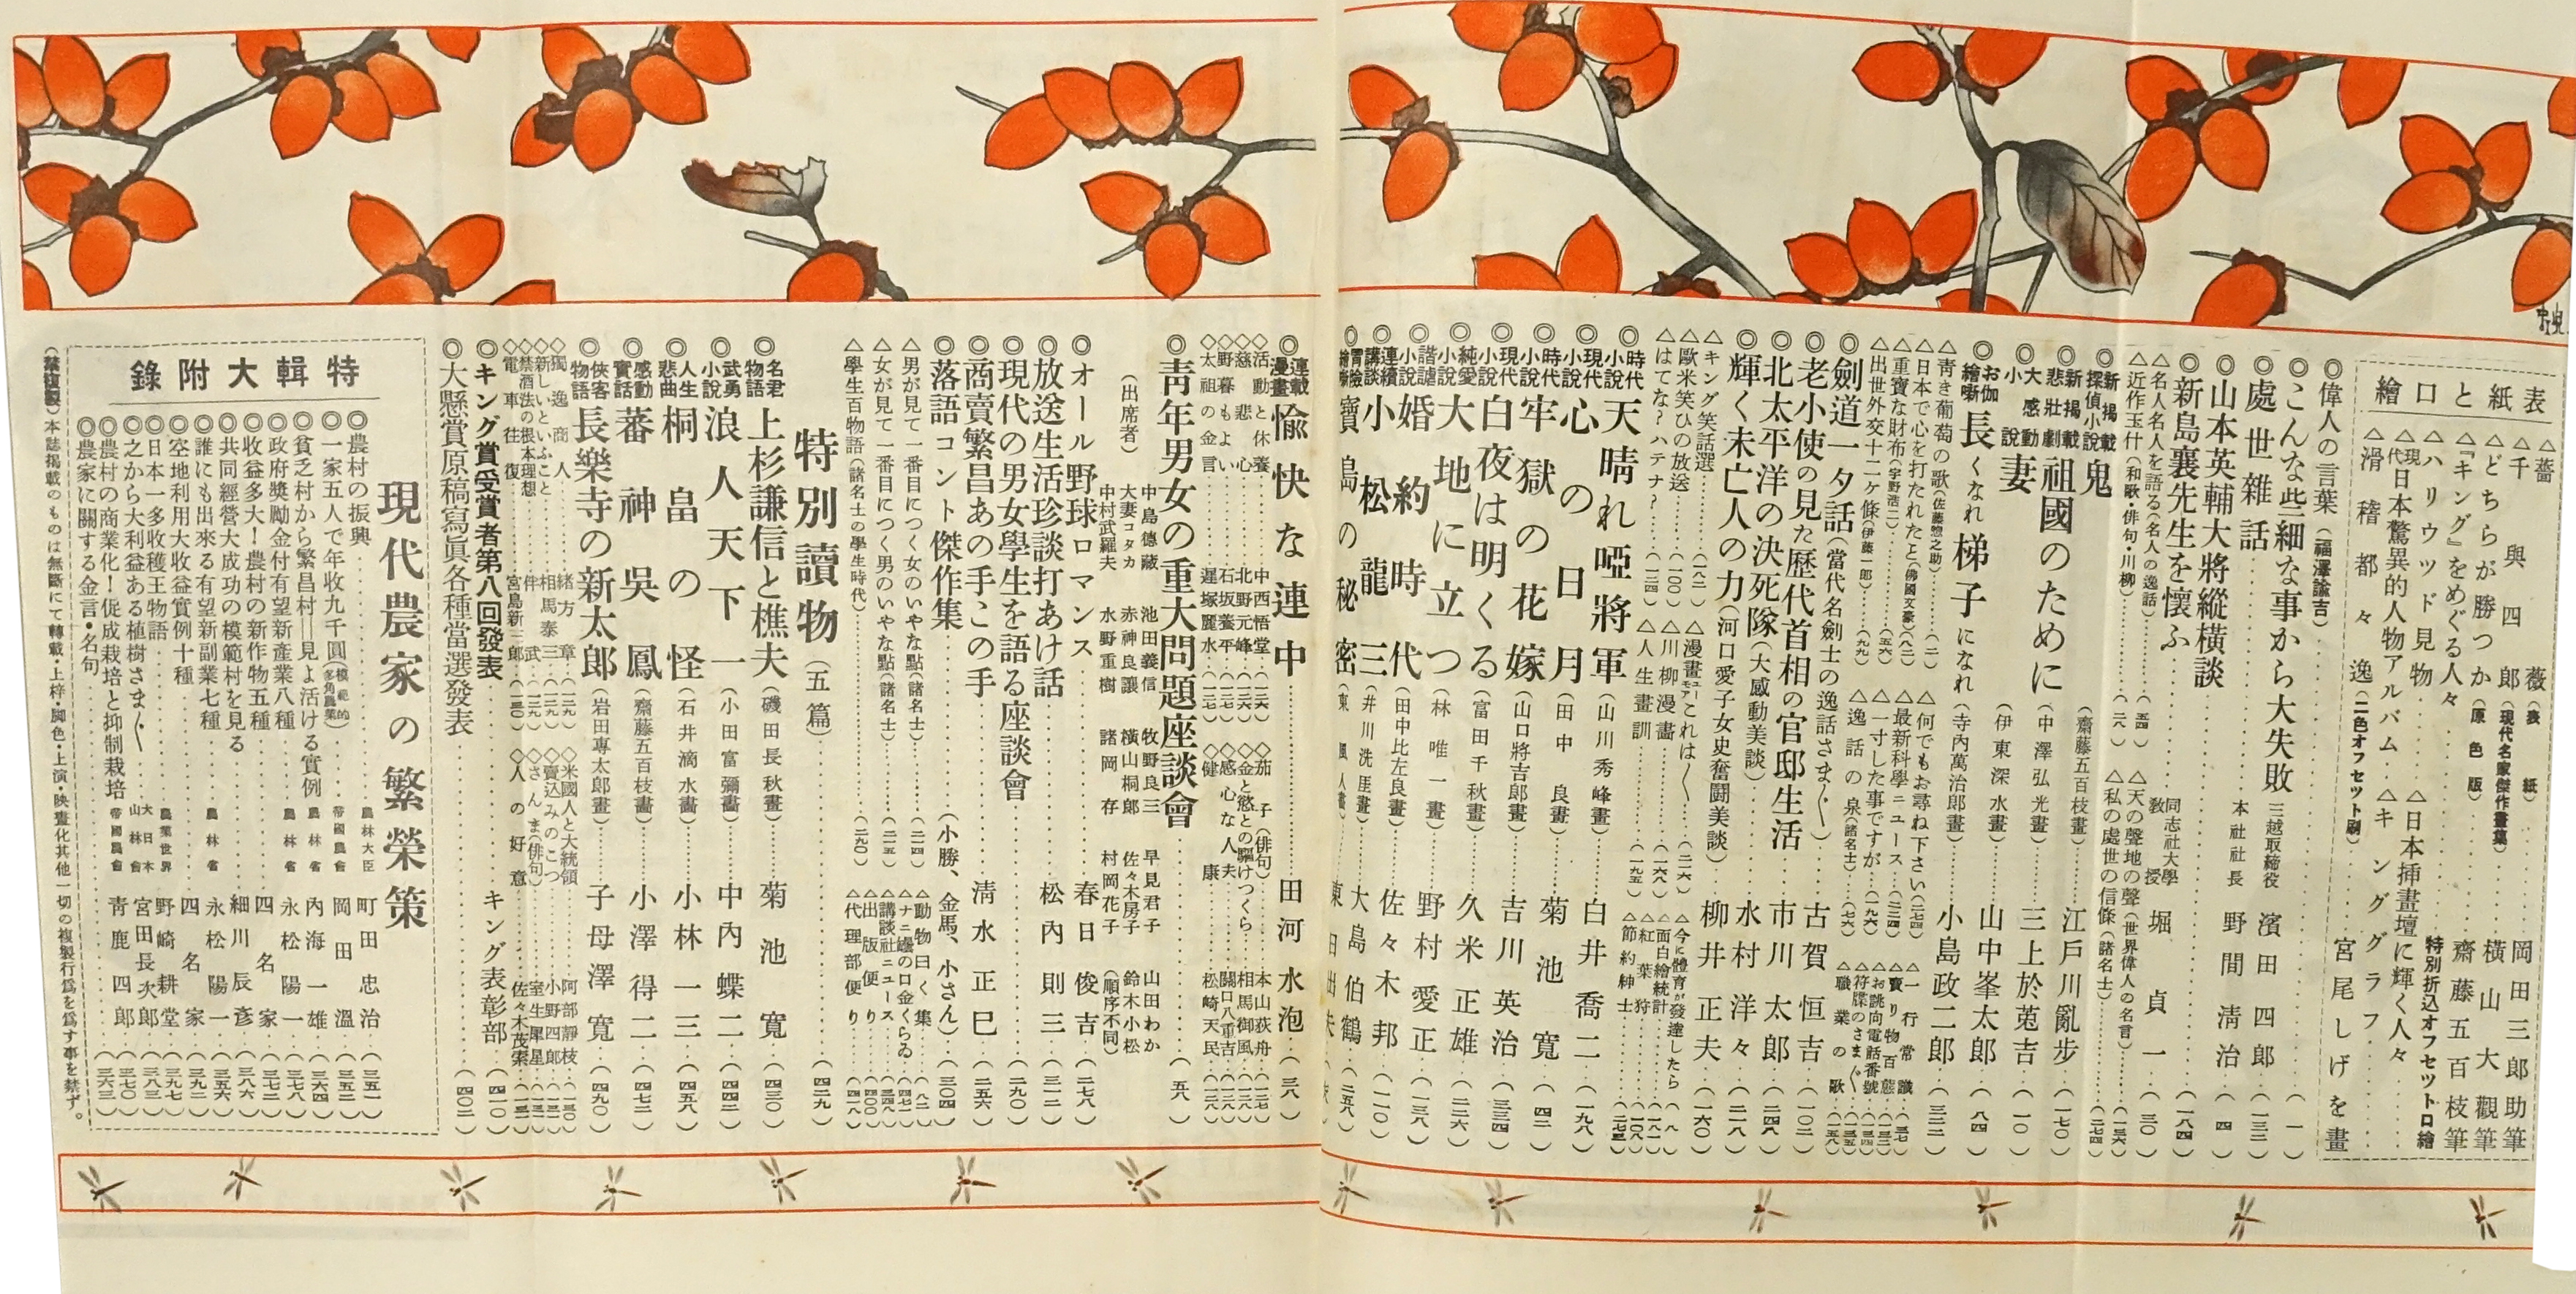 表紙と口繪
△薔薇(表紙)……岡田三郎助筆
△千與四郎(現代名家傑作畫集)……橫山大觀筆
△どちらが勝つか(原色版)……齋藤五百枝筆
△『キング』をめぐる人々
△ハリウッド見物……特別折込オフセット口繪
△現代日本驚異的人物アルバム……△日本挿畫壇に輝く人々
△滑稽都々逸(二色オフセット刷)……△キンググラフ……宮尾しげを畫
◎偉人の言葉(福澤諭吉)……(一)
◎こんな些細な事から大失敗 三越取締役 濱田四郎…(一三二)
◎處世雜話……本社社長 野間清治…(四)
◎山本英輔大將縱橫談……(一八四)
◎新島襄先生を懷ふ……同志社大學敎授 堀貞一…(三〇)
△名人名人を語る(名人の逸話)
△近作玉什(和歌・俳句・川柳)
△天の聲地の聲(世界偉人の名言)……(一三六)
△私の處世の信條(諸名士)……(二七四)
◎新掲載探偵小說 鬼(齋藤五百枝畫)……江戸川亂步…(一七〇)
◎新掲載悲壯劇 祖國のために(中澤弘光畫)……三上於菟吉…(一〇)
◎大感動小說 妻(伊東深水畫)……山中峯太郎…(八四)
◎お伽繪噺 長くなれ梯子になれ(寺內萬治郎畫)……小島政二郎…(三二二)
△靑き葡萄の歌(佐藤惣之助)……(二)
△日本で心を打たれたこと(佛國文豪)
△重寶な財布(宇野浩二)
△出世外交十二ケ條(伊藤一郎)……(九九)
△何でもお尋ね下さい(二七四)
△最新科學ニュース
△一寸した事ですが
△逸話の泉(諸名士)
△一行常識
△賣り物百態
△お誂向電話番號
△符牒のさま〴〵
△職業の歌
◎劍道一夕話(當代名劍士の逸話さま〴〵)……古賀恒吉…(一〇二)
◎老小使の見た歷代首相の官邸生活……市川太郎…(二四八)
◎北太平洋の決死隊(大感動美談)……水村洋々…(二一八)
◎輝く未亡人の力(河口愛子女史奮鬪美談)…柳井正夫…(一六〇)
△キング笑話選
△歐米笑ひの放送……(一〇〇)
△はてな?ハテナ?……(一二四)
△漫畫ニュースこれは〳〵……(二一六)
△川柳漫畫
△人生畫訓……(一九五)
△今に體育が發達したら
△面白繪統計
△紅葉狩
△節約紳士
◎時代小說 天晴れ啞將軍(山川秀峰畫)……白井喬二…(一九八)
◎現代小說 心の日月(田中良畫)……菊池寬…(四二)
◎時代小說 牢獄の花嫁(山口將吉郎畫)……吉川英治…(三三四)
◎現代小說 白夜は明くる(富田千秋畫)……久米正雄…(二二六)
◎純愛小說 大地に立つ(林唯一畫)……野村愛正…(一三八)
◎諧謔小說 婚約時代(田中比左良畫)……佐々木邦…(一一〇)
◎連續講談 小松龍三(井川洗厓畫)……大島伯鶴…(二五八)
寶島の秘密
◎連載漫畫 愉快な連中……田河水泡…(三八)
◇活動と休養……中西悟堂…(一二六)
◇慈悲心……北野元峰…(一二六)
◇野暮もよい……石坂養平…(一二七)
◇太祖の金言……遲塚麗水…(一二七)
◇茄子(俳句)……本山荻舟…(一二七)
◇金と慾との驅けつくら……相馬御風…(一二八)
◇感心な人夫……關口八重吉…(一二八)
◇健康……松崎天民…(一二八)
◎靑年男女の重大問題座談會……(五八)
(出席者)
中島德藏 池田義信 牧野良三 早見君子 山田わか
大妻コタカ 赤神良讓 橫山桐郎 佐々木房子 鈴木小松
中村武羅夫 水野重樹 諸岡存 村岡花子 (順序不同)
◎オール野球ロマンス……春日俊吉…(二七八)
◎放送生活珍談打あけ話……松內則三…(三一二)
◎現代の男女學生を語る座談會……(二九〇)
◎商賣繁昌あの手この手……淸水正巳…(二五六)
◎落語コント傑作集……(小勝、金馬、小さん)…(三〇四)
△男が見て一番目につく女のいやな點(諸名士)
△女が見て一番目につく男のいやな點(諸名士)
△學生百物語(諸名士の學生時代)……(二九〇)
△動物曰く集
△ナニ嬢の口金くらゐ
△講談社ニュース
△出版便り…(四〇〇)
△代理部便り…(四一八)
特別讀物(五篇)……(四二九)
◎名君物語 上杉謙信と樵夫(磯田長秋畫)……菊池寬…(四三〇)
◎武勇小說 浪人天下一(小田富彌畫)……中內蝶二…(四四二)
◎人生悲曲 桐畠の怪(石井滴水畫)……小林一三…(四五八)
◎感動實話 蕃神吳鳳(齋藤五百枝畫)……小澤得二…(四七二)
◎俠客物語 長樂寺の新太郎(岩田專太郎畫)……子母澤寬…(四九〇)
◇獨逸商人……緖方章…(一二九)
◇新しいといふこと……相馬泰三…(一二九)
◇禁酒法の根本理想……伴武…(一二九)
◇電車往復……宮島新三郎…(一三〇)
◇米國人と大統領……阿部靜枝…(一三〇)
◇賣込みのこつ……小野四郎…(一三一)
◇さんま(俳句)……室生犀星…(一三一)
◇人の好意……佐々木茂索…(一三一)
◎キング賞受賞者第八回發表……キング表彰部…(四一〇)
◎大懸賞原稿寫眞各種當選發表……(四〇二)
特輯大附錄
現代農家の繁榮策
◎農村の振興……農林大臣 町田忠治…(三五一)
◎一家五人で年收九千圓(模範的多角農業)……帝國農會 岡田溫…(三五二)
◎貧乏村から繁昌村―見よ活ける實例 農林省 內海一雄…(三六四)
◎政府奬勵金付有望新產業八種 農林省 永松陽一…(三七八)
◎收益多大!農村の新作物五種……四名家…(三七二)
◎共同經營大成功の模範村を見る……細川辰彥…(三八六)
◎誰にも出來る有望新副業七種 農林省 永松陽一…(三五六)
◎空地利用大收益實例十種……四名家…(三九二)
◎日本一多收穫王物語……農業世界 野崎耕堂…(三九七)
◎之から大利益ある植樹さま〴〵 大日本山林會 宮田長次郎…(三八三)
◎農村の商業化!促成栽培と抑制栽培 帝國農會 靑鹿四郎…(三七〇)
◎農家に關する金言・名句……(三六三)
(禁複製)本誌掲載のものは無斷にて轉載・上梓・脚色・上演・映畫化其他一切の複製行爲を爲す事を禁ず。